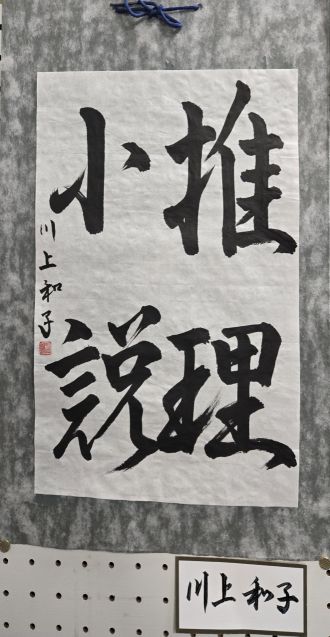 推理
小説
川上和子
川上和子